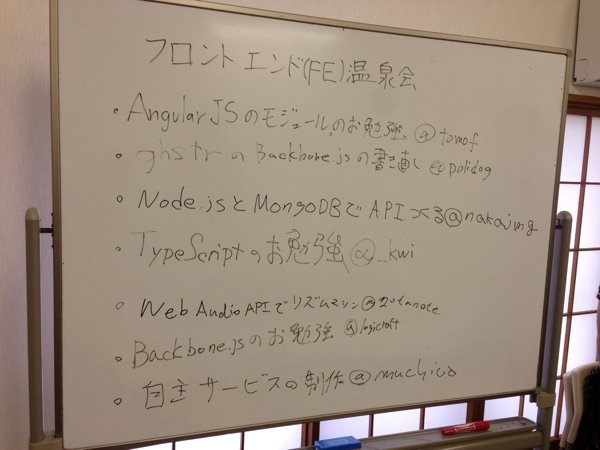 フロントエンド(FE)温泉会
・AngularJSのモジュールのお勉強 @tomof
・ghstrのBackbone.jsの書き直し @polidog
・Node.jsとMongoDBでAPIつくる @nakajmg
・TypeScriptのお勉強 @_kwi
・Web Audio APIでリズムマシン @zotanote
・Backbone.jsのお勉強 @logicroft
・自主サービスの制作 @muchico